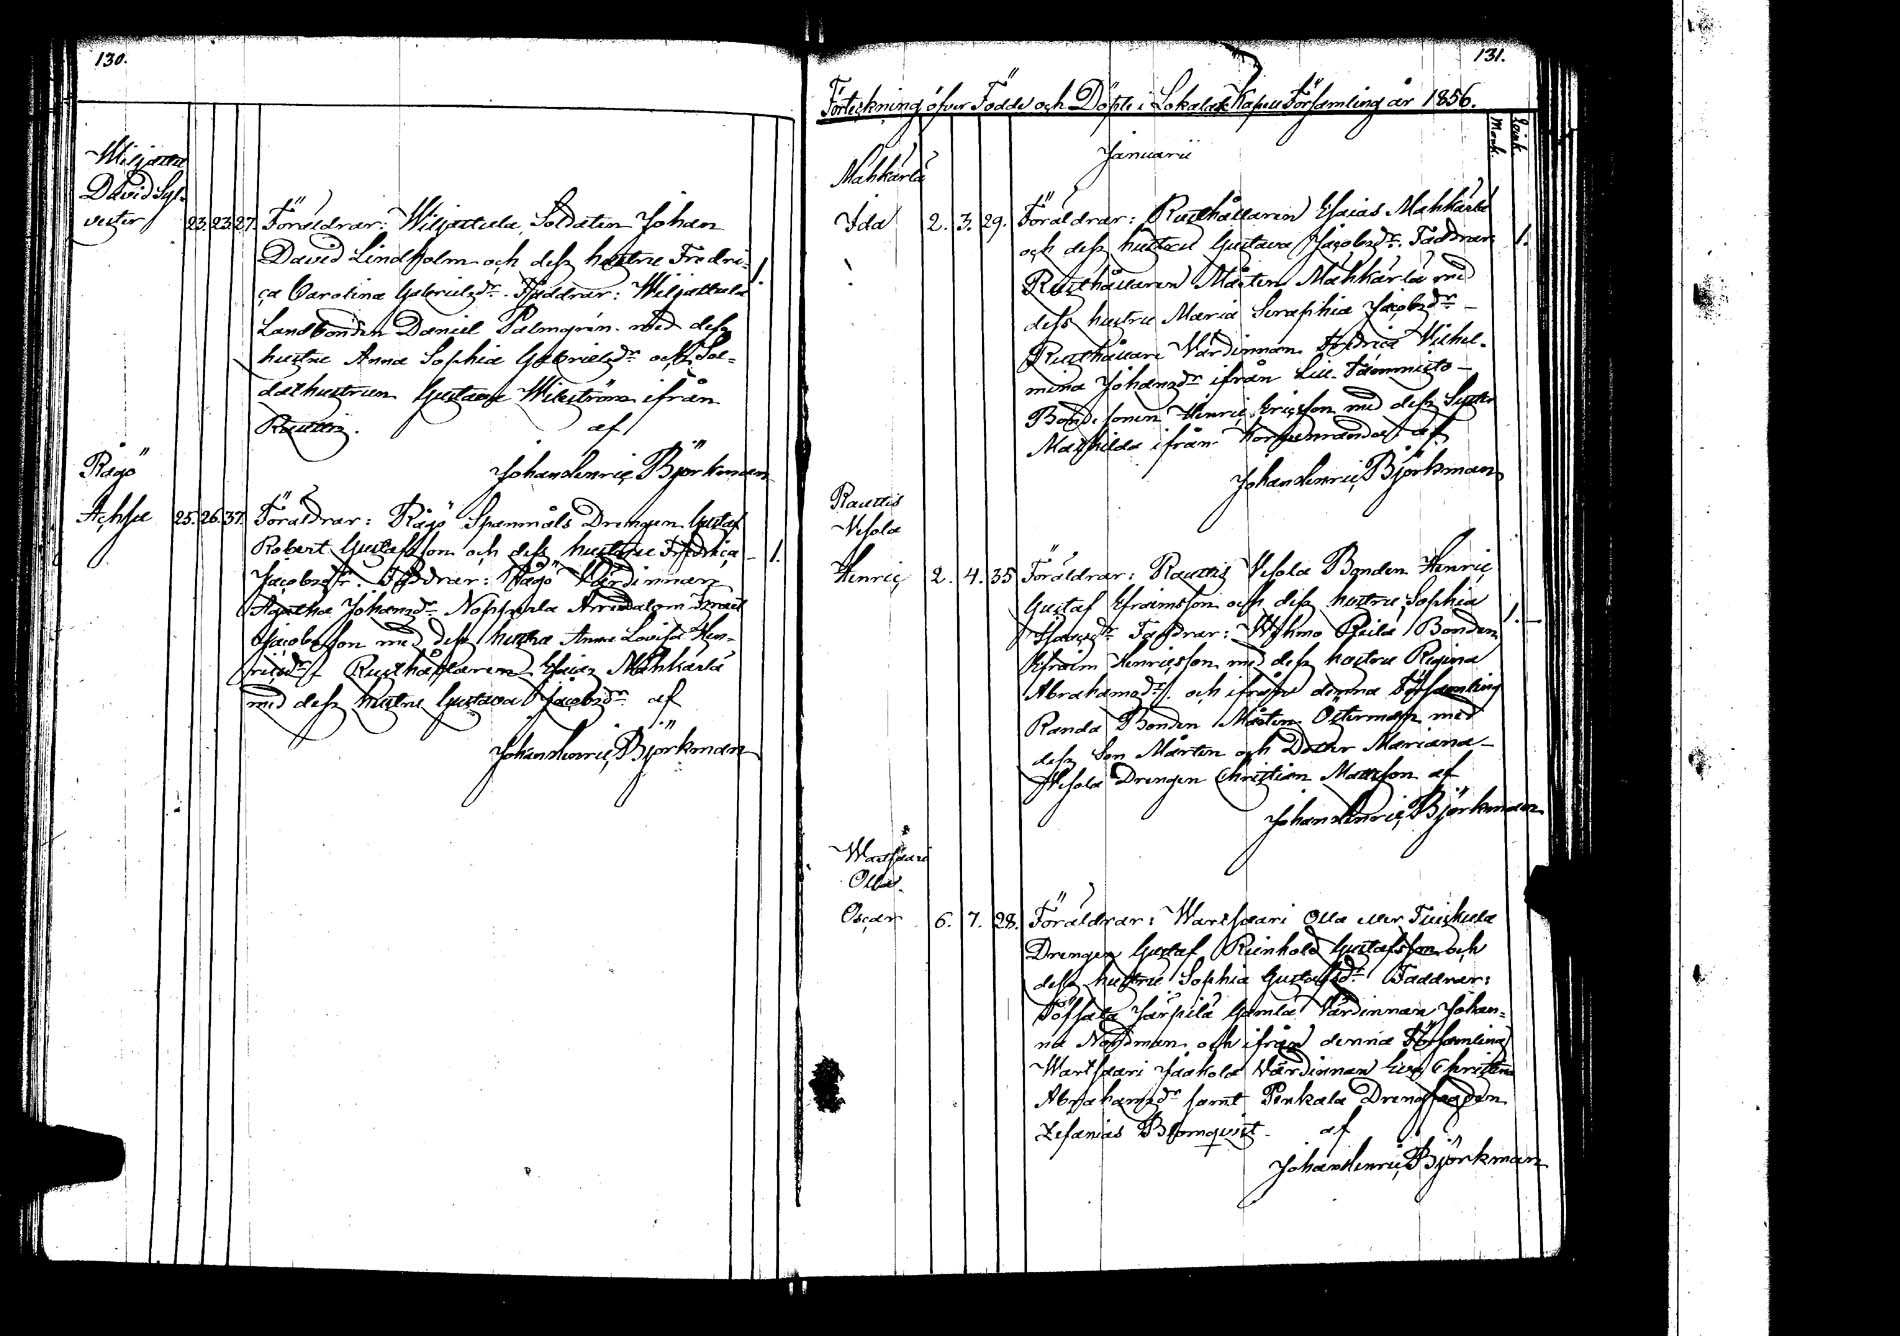 130.
Wiljattu
David Syl-
vester 23. 23. 27. Föräldrar: Wiljattula Soldaten Johan
David Lindholm och dess hustru Fredri-
ca Carolina Gabrielsdr. Faddrar: Wiljattula 1.
Landbonden Daniel Palmgrén med dess
hustru Anna Sophia Gabrielsdr och Sol-
dathustrun Gustava Wikström ifrån
Rauttis. af
Johan Henric Björkman
Rågö
Achsa 25. 26. 37. Föräldrar: Rågö Spanmåls Drengen Gustaf
Robert Gustafsson och dess hustru Fredrica 1.
Jacobsdr. Faddrar: Rågö Värdinnan
Agatha Johansdr. Nopperla Israel
Jacobsson med dess hustru Anna Lovisa Hen-
ricsdr Rusthållaren Esaias Mähkärlä
med dess hustru Gustava Jacobsdr af
Johan Henric Björkman
131.
Förteckning öfver Födde och Döpte i Lokalax Kapell Församling år 1856.
Januarii
Mank.
Qvink.
Mähkärlä
Ida 2. 3. 29. Föräldrar: Rusthållaren Esaias Mähkärlä
och dess hustru Gustava Jacobsdr. Faddrar: 1.
Rusthållaren Mårten Mähkärlä med
dess hustru Maria Seraphia Jacobsdr –
Rusthållare Värdinnan Fredrica Vilhel-
mina Johansdr ifrån Lill Tammisto –
Bondesonen Henric Ericsson med dess Syster
Mathilda ifrån af
Johan Henric Björkman
Rauttis
Vesola
Henric 2. 4. 35 Föräldrar: Rauttis Vesola Bonden Henric
Gustaf Efraimsson och dess hustru Sophia 1.
Isacsdr Faddrar: Wehmo Reila Bonden
Efraim Henricsson med dess hustru Regina
Abrahamsdr. och ifrån denna Församling
Randa Bonden Mårten Österman med
dess Son Mårten och Dotter Mariana –
Vesola Drengen Christian Mattsson af
Johan Henric Björkman
Wartsaari
Olla.
Oscar 6. 7. 28. Föräldrar: Wartsaari Olla eller Tuiskula
Drengen Gustaf Reinhold Gustafsson och
dess hustru Sophia Gustafsdr Faddrar:
Töfsala Järpilä Gamla Värdinnan Johan-
na Nordman och ifrån denna Församling
Wartsaari Jaakola Värdinnan Eva Christina
Abrahamsdr samt Penkala Drengfogden
Zefanias Blomqvist. af
Johan Henric Björkman